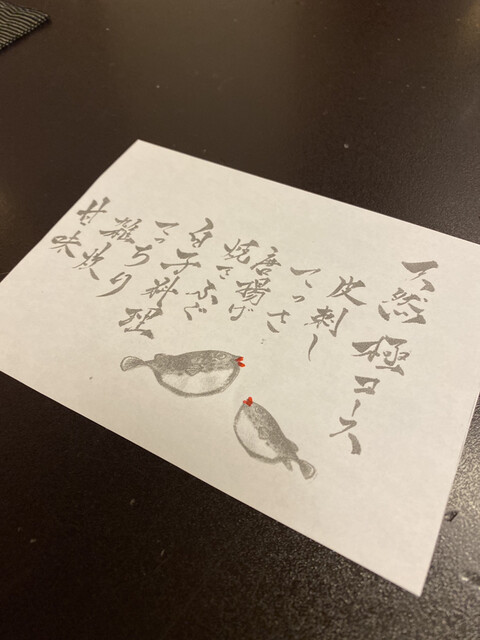 天然極コース
皮刺し
てっさ
唐揚げ
焼きふぐ
白子料理
てっちり
雑炊
甘味